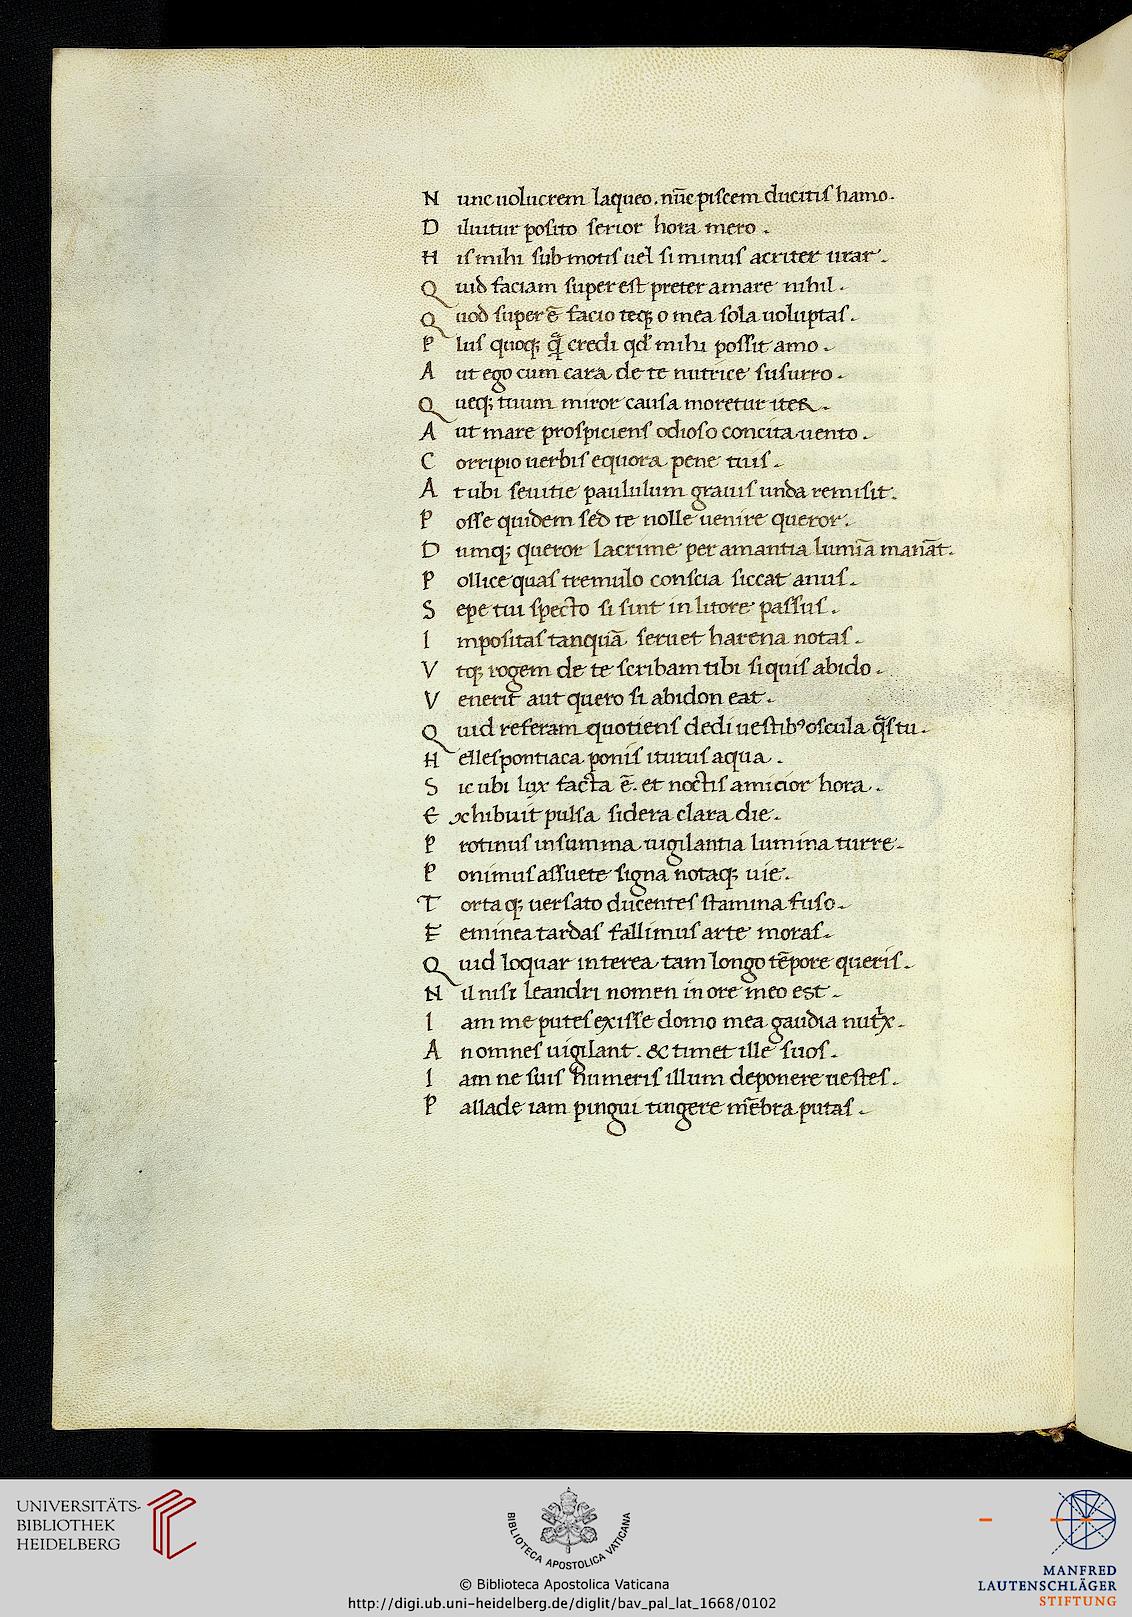 N unc uolucrem laqueo. nūc piscem ducitis hamo.
D iluitur posito serior hora mero.
H is mihi submotis uel si minus acriter urar.
Q uid faciam superest preter amare nihil.
Q uod super ē facio teq; o mea sola uoluptas.
P lus quoq; q̄ credi qd mihi possit amo.
A ut ego cum cara de te nutrice susurro.
Q ueq; tuum miror causa moretur iter.
A ut mare prospiciens odioso concita uento.
C orripio uerbis equora pene tuis.
A t ubi seuitie paululum grauis unda remisit.
P osse quidem sed te nolle uenire queror.
D umq; queror lacrime per amantia lumīa manāt.
P ollice quas tremulo conscia siccat anus.
S epe tui specto si sint in litore passus.
I mpositas tanquā seruet harena notas.
V tq; rogem de te scribam tibi siquis abido.
V enerit aut quero si abidon eat.
Q uid referam quotiens dedi uestibꝰ oscula q̄s tu.
H ellespontiaca ponis iturus aqua.
S ic ubi lux facta ē. et noctis amicior hora.
E xhibuit pulsa sidera clara die.
P rotinus in summa uigilantia lumina turre.
P onimus assuete signa notaq; uie.
T ortaq; uersato ducentes stamina fuso.
F eminea tardas fallimus arte moras.
Q uid loquar interea tam longo tēpore queris.
N il nisi leandri nomen in ore meo est.
I am me putes exisse domo mea gaudia nutͥx.
A n omnes uigilant. & timet ille suos.
I am ne suis humeris illum deponere uestes.
P allade iam pingui tingere mēbra putas.
UNIVERSITÄTS-
BIBLIOTHEK
HEIDELBERG
BIBLIOTECA APOSTOLICA VATICANA
MANFRED
LAUTENSCHLÄGER
STIFTUNG
© Biblioteca Apostolica Vaticana
http://digi.ub.uni-heidelberg.de/diglit/bav_pal_lat_1668/0102